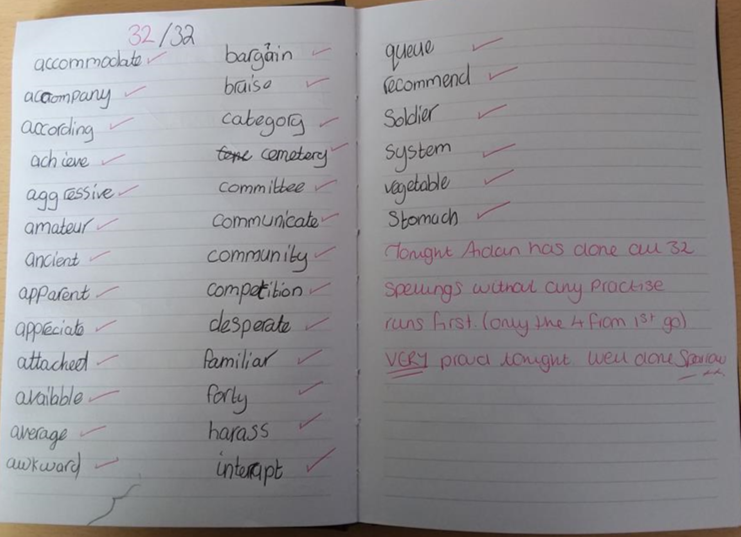 32/32
accommodate
accompany
according
achieve
aggressive
amateur
ancient
apparent
appreciate
attached
available
average
awkward
bargain
bruise
category
cemetery
committee
communicate
community
competition
desperate
familiar
forty
harass
interrupt
queue
recommend
Soldier
System
vegetable
Stomach
Tonight Aidan has done all 32
Spellings without any Practise
runs first. (only the 4 from 1st go)
VERY proud tonight well done